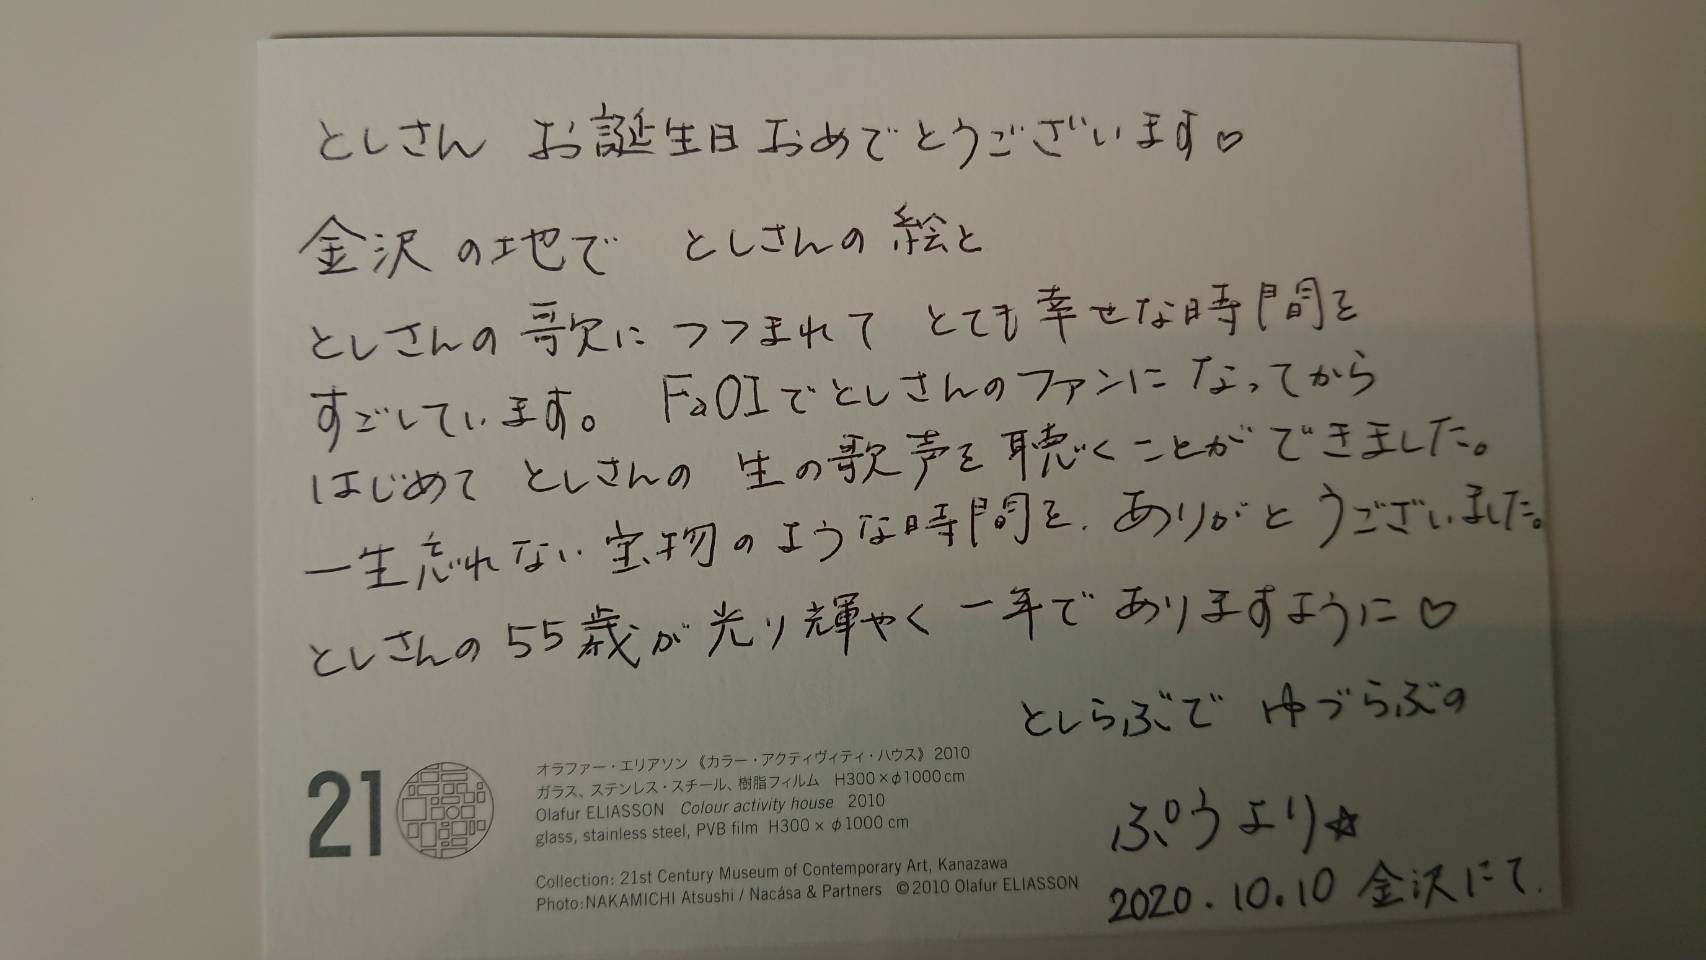 としさん お誕生日おめでとうございます♡
金沢の地で としさんの絵と
としさんの歌につつまれて とても幸せな時間を
すごしています。 FaOIでとしさんのファンになってから
はじめて としさんの 生の歌声を聴くことができました。
一生忘れない宝物のような時間を、ありがとうございました。
としさんの55歳が光り輝やく 一年でありますように♡
としらぶで ゆづらぶの
ぷうより☆
2020.10.10 金沢にて.
21
オラファー・エリアソン 《カラー・アクティヴィティ・ハウス》 2010
ガラス、ステンレス・スチール、樹脂フィルム H300×φ1000cm
Olafur ELIASSON Colour activity house 2010
glass, stainless steel, PVB film H300 × φ1000 cm
Collection: 21st Century Museum of Contemporary Art, Kanazawa
Photo:NAKAMICHI Atsushi / Nacása & Partners ©2010 Olafur ELIASSON